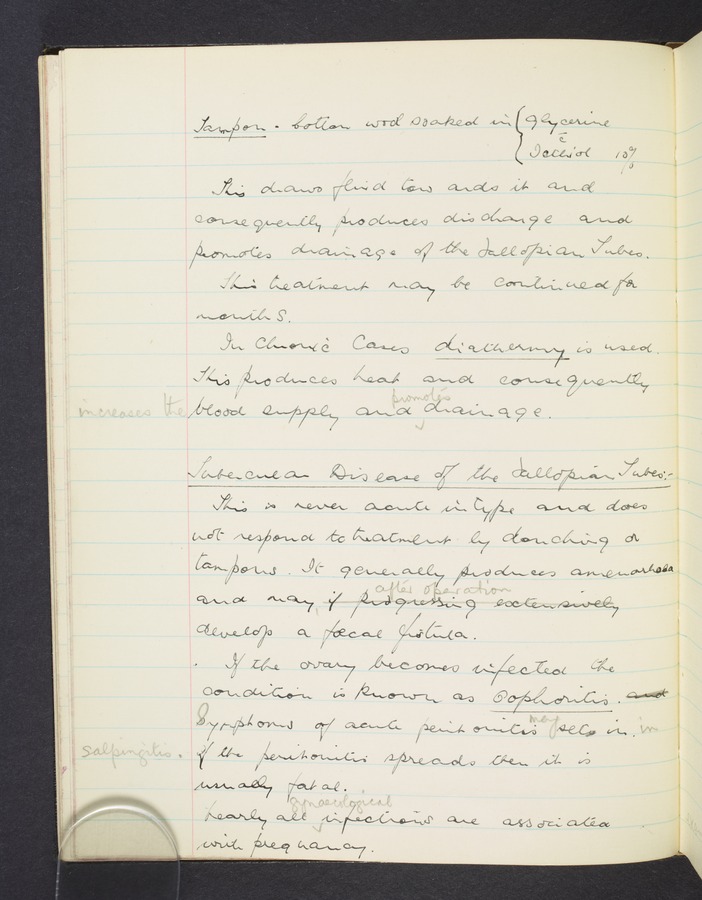 Tampon - Cotton wool soaked in { Glycerine
c̄
Icthiol 10%
This draws fluid towards it and
consequently produces discharge and
promotes drainage of the Fallopian Tubes.
This treatment may be continued for
months.
In Chronic Cases diathermy is used.
This produces heat and consequently
increases the blood supply and promotes drainage.
Tubercular Disease of the Fallopian Tubes:-
This is never acute in type and does
not respond to treatment by douching or
tampons. It generally produces amenorrhoea
after operation
and may, if progressing extensively
develop a fœcal fistula.
If the ovary becomes infected the
condition is known as Oophoritis. and
Symptoms of acute peritonitis may sets in. in
salpingitis. if the peritonitis spreads then it is
usually fatal.
gynaecological
Nearly all infections are associated
with pregnancy.